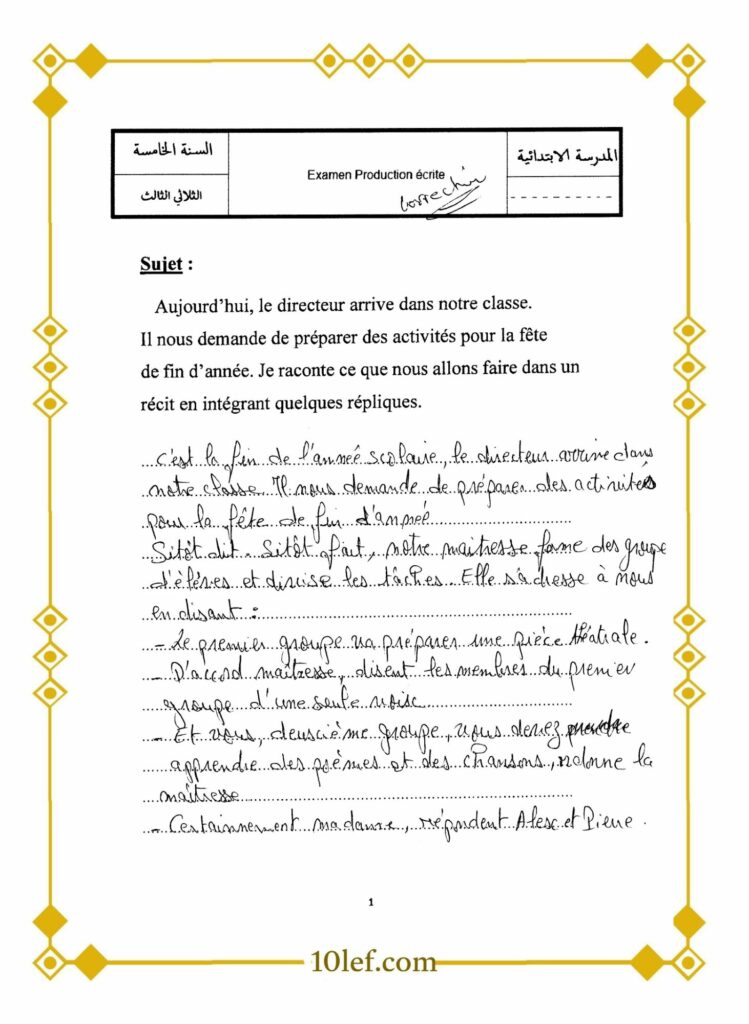 السنة الخامسة
الثلاثي الثالث
Examen Production écrite
correction
المدرسة الابتدائية
Sujet :
Aujourd'hui, le directeur arrive dans notre classe.
Il nous demande de préparer des activités pour la fête
de fin d'année. Je raconte ce que nous allons faire dans un
récit en intégrant quelques répliques.
c'est la fin de l'anneé scolaire, le directeur arrive dans
notre classe. Il nous demande de préparer des activités
pour la fête de fin d'anneé
Sitôt dit. Sitôt fait, notre maitresse forme des groupe
d'élèves et divise les tâches. Elle s'adresse à nous
en disant :
- Le premier groupe va préparer une pièce théatrale.
- D'accord maîtresse, disent les membres du premier
groupe d'une seule voix
- Et vous, deuxième groupe, vous devez
apprendre des poèmes et des chansons, ordonne la
maîtresse
- Certainnement madame, répondent Alex et Pierre.
1
10lef.com